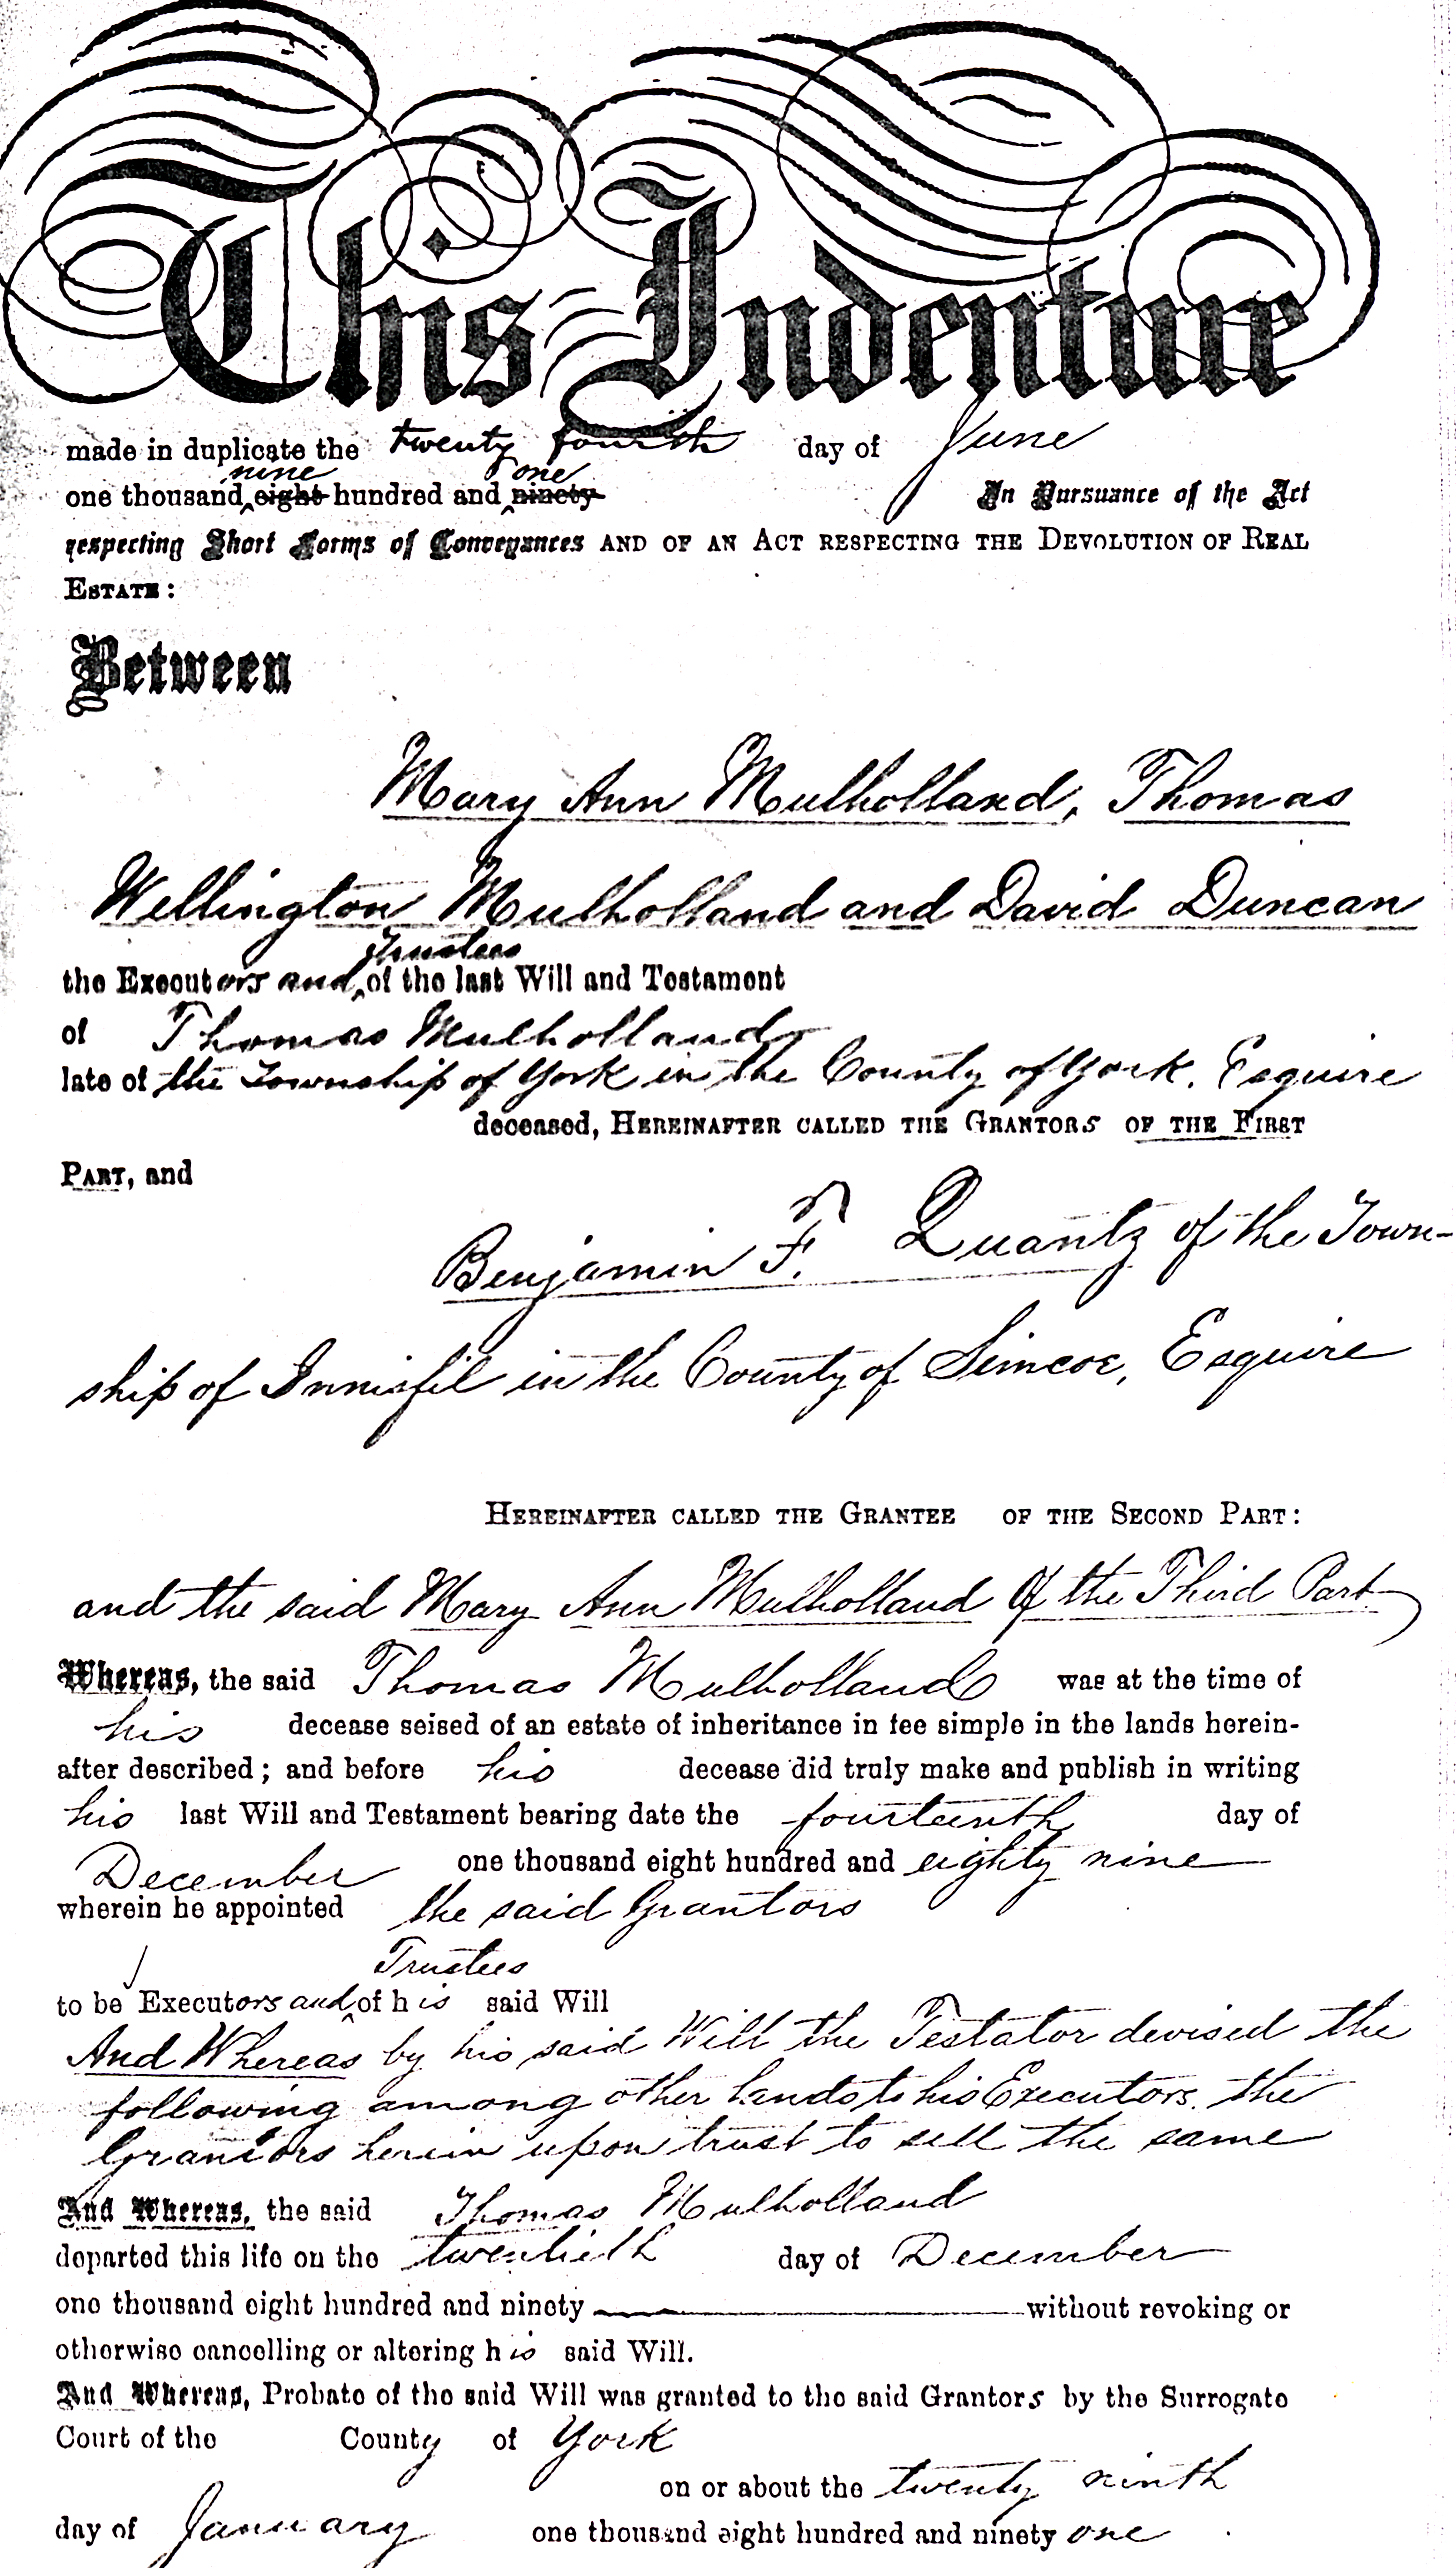 This Indenture
made in duplicate the twenty fourth day of June
nine one
one thousand eight hundred and ninety In Pursuance of the Act
respecting Short Forms of Conveyances AND OF AN ACT RESPECTING THE DEVOLUTION OF REAL
ESTATE:
Between
Mary Ann Mulholland, Thomas
Wellington Mulholland and David Duncan
Trustees
the Executors and of the last Will and Testament
of Thomas Mulholland
late of the Township of York in the County of York, Esquire
deceased, HEREINAFTER CALLED THE GRANTORS OF THE FIRST
PART, and
Benjamin F. Quantz of the Town-
ship of Innisfil in the County of Simcoe, Esquire
HEREINAFTER CALLED THE GRANTEE OF THE SECOND PART:
and the said Mary Ann Mulholland Of the Third Part
Whereas, the said Thomas Mulholland was at the time of
his decease seised of an estate of inheritance in fee simple in the lands herein-
after described; and before his decease did truly make and publish in writing
his last Will and Testament bearing date the fourteenth day of
December one thousand eight hundred and eighty nine
wherein he appointed the said Grantors
Trustees
to be Executors and of his said Will
And Whereas by his said Will the Testator devised the
following among other lands to his Executors, the
Grantors herein upon trust to sell the same
And Whereas, the said Thomas Mulholland
departed this life on the twentieth day of December
one thousand eight hundred and ninety without revoking or
otherwise cancelling or altering his said Will.
And Whereas, Probate of the said Will was granted to the said Grantors by the Surrogate
Court of the County of York
on or about the twenty ninth
day of January one thousand eight hundred and ninety one